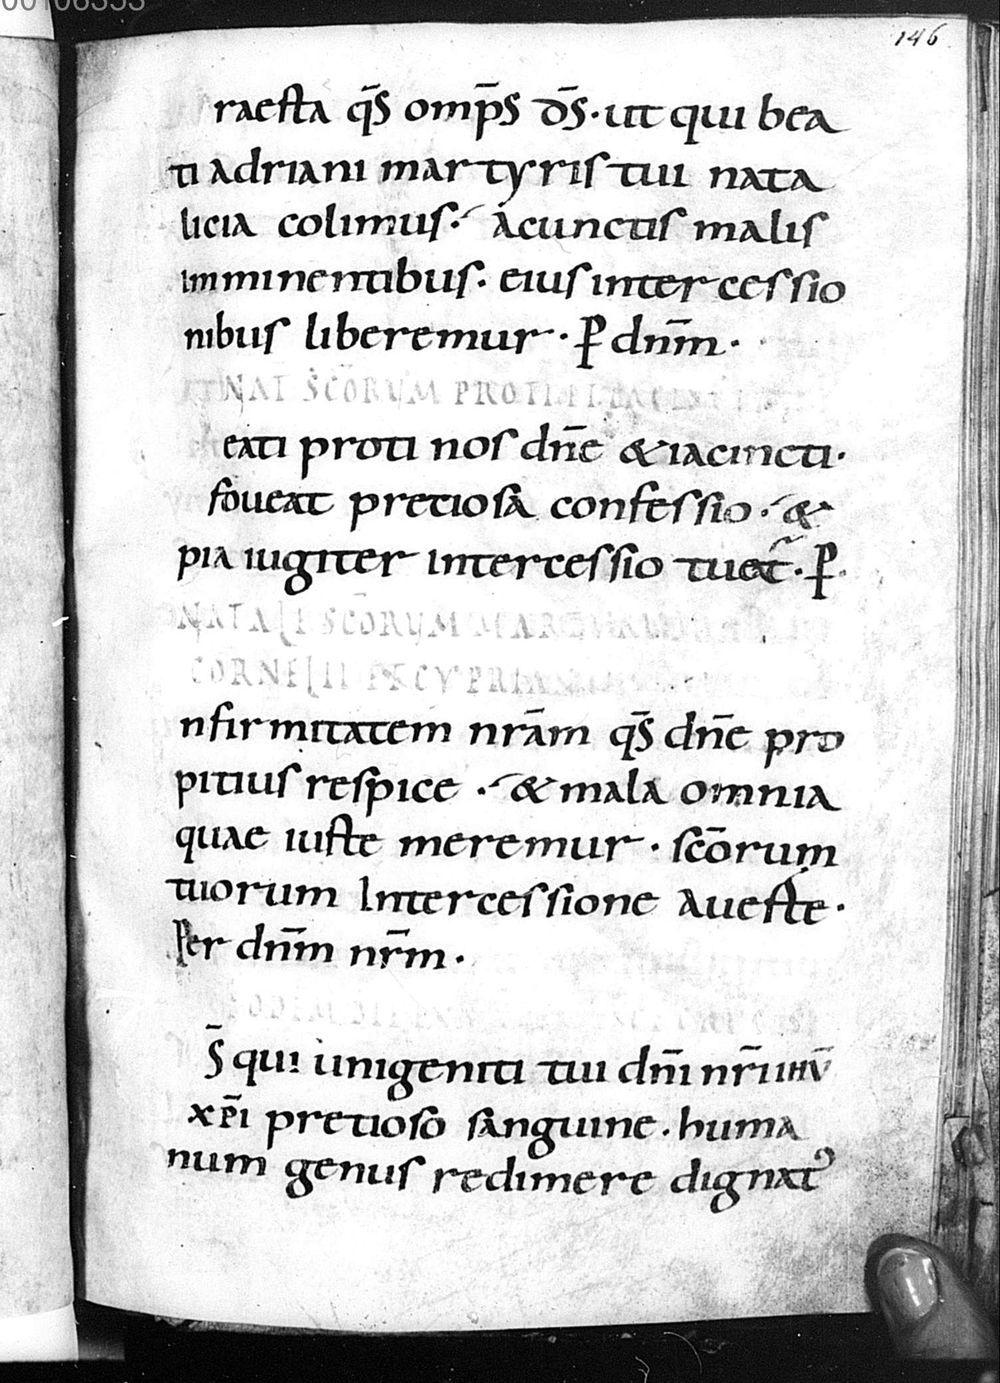 00106353
146
raesta q̄s omp̄s d̄s · ut qui bea
ti adriani martyris tui nata
licia colimus · a cunctis malis
imminentibus · eius intercessio
nibus liberemur · P dn̄m ·
NAT SC̄ORUM PROTI ET IACINTI
eati proti nos dn̄e & iacincti ·
foveat pretiosa confessio · &
pia iugiter intercessio tueat̃ · P ·
NATALI SC̄ORUM MAR
CORNELII ET CYPRIANI
nfirmitatem nr̄am q̄s dn̄e pro
pitius respice · & mala omnia
quae iuste meremur · sc̄orum
tuorum intercessione averte ·
Per dn̄m nr̄m ·
S̄ qui unigeniti tui dn̄i nr̄i ihū
xp̄i pretioso sanguine · huma
num genus redimere dignat᾽